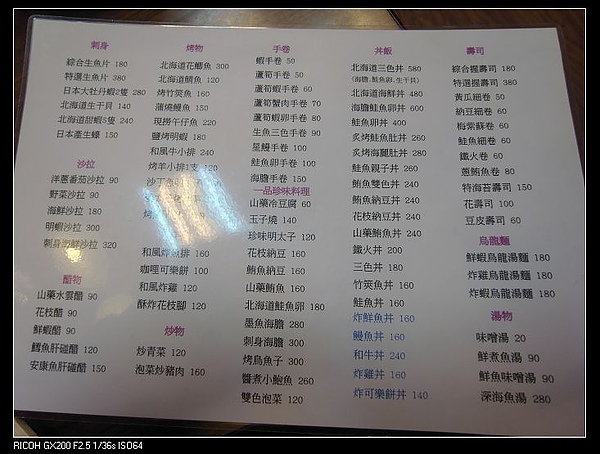 刺身
綜合生魚片 180
特選生魚片 380
日本大牡丹蝦2隻 280
北海道生干貝 140
北海道甜蝦5隻 240
日本產生蠔 150
沙拉
洋蔥番茄沙拉 90
野菜沙拉 90
海鮮沙拉 180
明蝦沙拉 300
刺身海鮮沙拉 320
醋物
山藥水雲醋 90
花枝醋 90
鮮蝦醋 90
鱈魚肝碰醋 120
安康魚肝碰醋 150
烤物
北海道花鯽魚 300
北海道鯖魚 120
烤竹筴魚 160
蒲燒鰻魚 150
現撈午仔魚 220
鹽烤明蝦 180
和風牛小排 240
烤羊小排1支 120
和風炸魚排 160
咖哩可樂餅 100
和風炸雞 120
酥炸花枝腳 120
炒物
炒青菜 120
泡菜炒豬肉 160
手卷
蝦手卷 50
蘆筍手卷 50
蘆筍蝦手卷 60
蘆筍蟹肉手卷 70
蘆筍蝦卵手卷 80
生魚三色手卷 90
星鰻手卷 100
鮭魚卵手卷 100
海膽手卷 150
一品珍味料理
山藥冷豆腐 60
玉子燒 140
珍味明太子 120
花枝納豆 160
鮪魚納豆 160
山藥鮪魚 160
北海道鮭魚卵 180
墨魚海膽 280
刺身海膽 300
烤烏魚子 300
醬煮小鮑魚 260
雙色泡菜 120
丼飯
北海道三色丼 580
(海膽.鮭魚卵.生干貝)
北海道海鮮丼 480
海膽鮭魚卵丼 600
鮭魚卵丼 400
炙烤鮭魚肚丼 260
炙烤海鱺肚丼 280
鮭魚親子丼 260
鮪魚雙色丼 240
鮪魚納豆丼 240
花枝納豆丼 240
山藥鮪魚丼 240
鐵火丼 200
三色丼 180
竹筴魚丼 160
鮭魚丼 160
炸鮮魚丼 160
鰻魚丼 160
和牛丼 240
炸雞丼 160
炸可樂餅丼 140
壽司
綜合握壽司 180
特選握壽司 380
黃瓜細卷 50
納豆細卷 60
梅紫蘇卷 60
鮭魚細卷 60
鐵火卷 60
蔥鮪魚卷 80
特海苔壽司 150
花壽司 100
豆皮壽司 60
烏龍麵
鮮蝦烏龍湯麵 180
炸雞烏龍湯麵 180
炸蝦烏龍湯麵 180
湯物
味噌湯 20
鮮煮魚湯 90
鮮魚味噌湯 90
深海魚湯 280
RICOH GX200 F2.5 1/36s ISO64